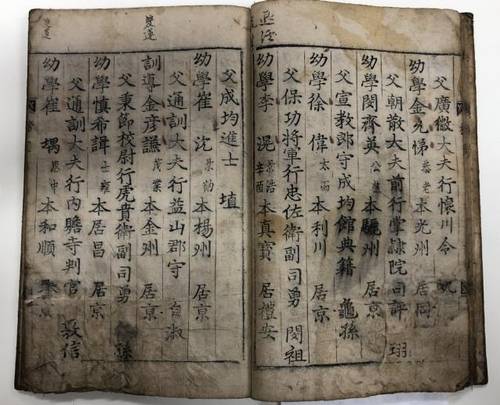 父廣徽大夫行懷川令
幼學金九悌 本光州 居同
父朝散大夫前行掌隷院司評 翊
幼學閔齊英 本驪州 居京
父宣教郎守成均館典籍 龜孫
幼學徐偉 本利川 居京
父保功將軍行忠佐衛副司勇 閔祖
幼學李滉 景浩 辛酉 本真寶 居禮安
父成均進士 埴
幼學崔沈 本楊州 居京
父通訓大夫行益山郡守 自淑
雙蓮
訓導金彦謙 本金州 居京
父秉節校尉行虎賁衛副司勇 孫
幼學慎希 本居昌 居京
父通訓大夫行內贍寺判官 敦信
雙蓮
幼學崔堣 本和順